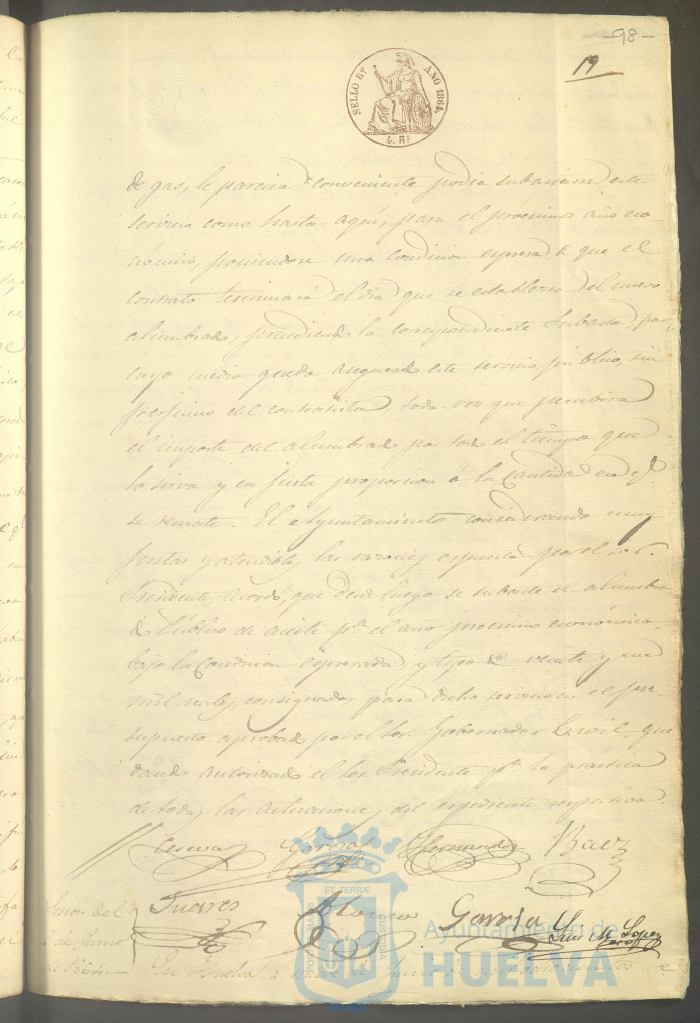 -98-
19
SELLO 4º AÑO 1864.
4. Rˢ
de gas, le parecia conveniente podia subastarse este
servicio como hasta aquí, para el próximo año eco-
nómico, poniendose una condicion espresa de que el
contrato terminará el dia que se establezca el nuevo
alumbrado, precediendo la correspondiente Subasta, por
cuyo medio queda asegurado este servicio público, sin
perjuicio del contratista, toda vez que percibirá
el importe del alumbrado por todo el tiempo que
lo sirva y en justa proporcion á la Cantidad en q.
se remate. El Ayuntamiento considerando muy
justas y atendibles las razones espuestas por el Sor.
Presidente, acordó, que desde luego se subaste el alumbra
do Público de aceite pª el año procsimo económico,
bajo la Condicion espresada, y tipo de veinte y nueve
mil reales, consignados para dicho servicio en el pre-
supuesto aprobado por el Sor. Gobernador Civil, que-
dando autorizado el Sor. Presidente pª la práctica
de todas las actuaciones del expediente respectivo.
Garcia Hernandez Baez
Suares Garcia Luis M. Lopez
Sesion del
de Junio
de 1864.—
En Huelva á
ET TERRÆ
CUSTODIA
Ayuntamiento de
HUELVA